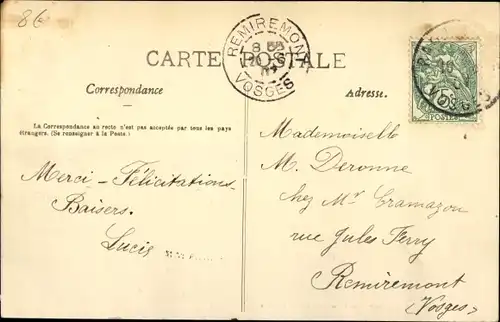 86
REMIREMONT
VOSGES
CARTE POSTALE
Correspondance
Adresse.
La Correspondance au recto n'est pas acceptée par tous les pays
étrangers. (Se renseigner à la Poste.)
Merci - Félicitations
Baisers.
Lucie
Mademoiselle
M. Deronne
chez Mr Gramazon
rue Jules Ferry
Remiremont
(Vosges)
POSTES